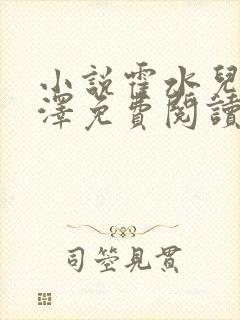 小說霍水兒
澤免費閱讀
司箜見貫